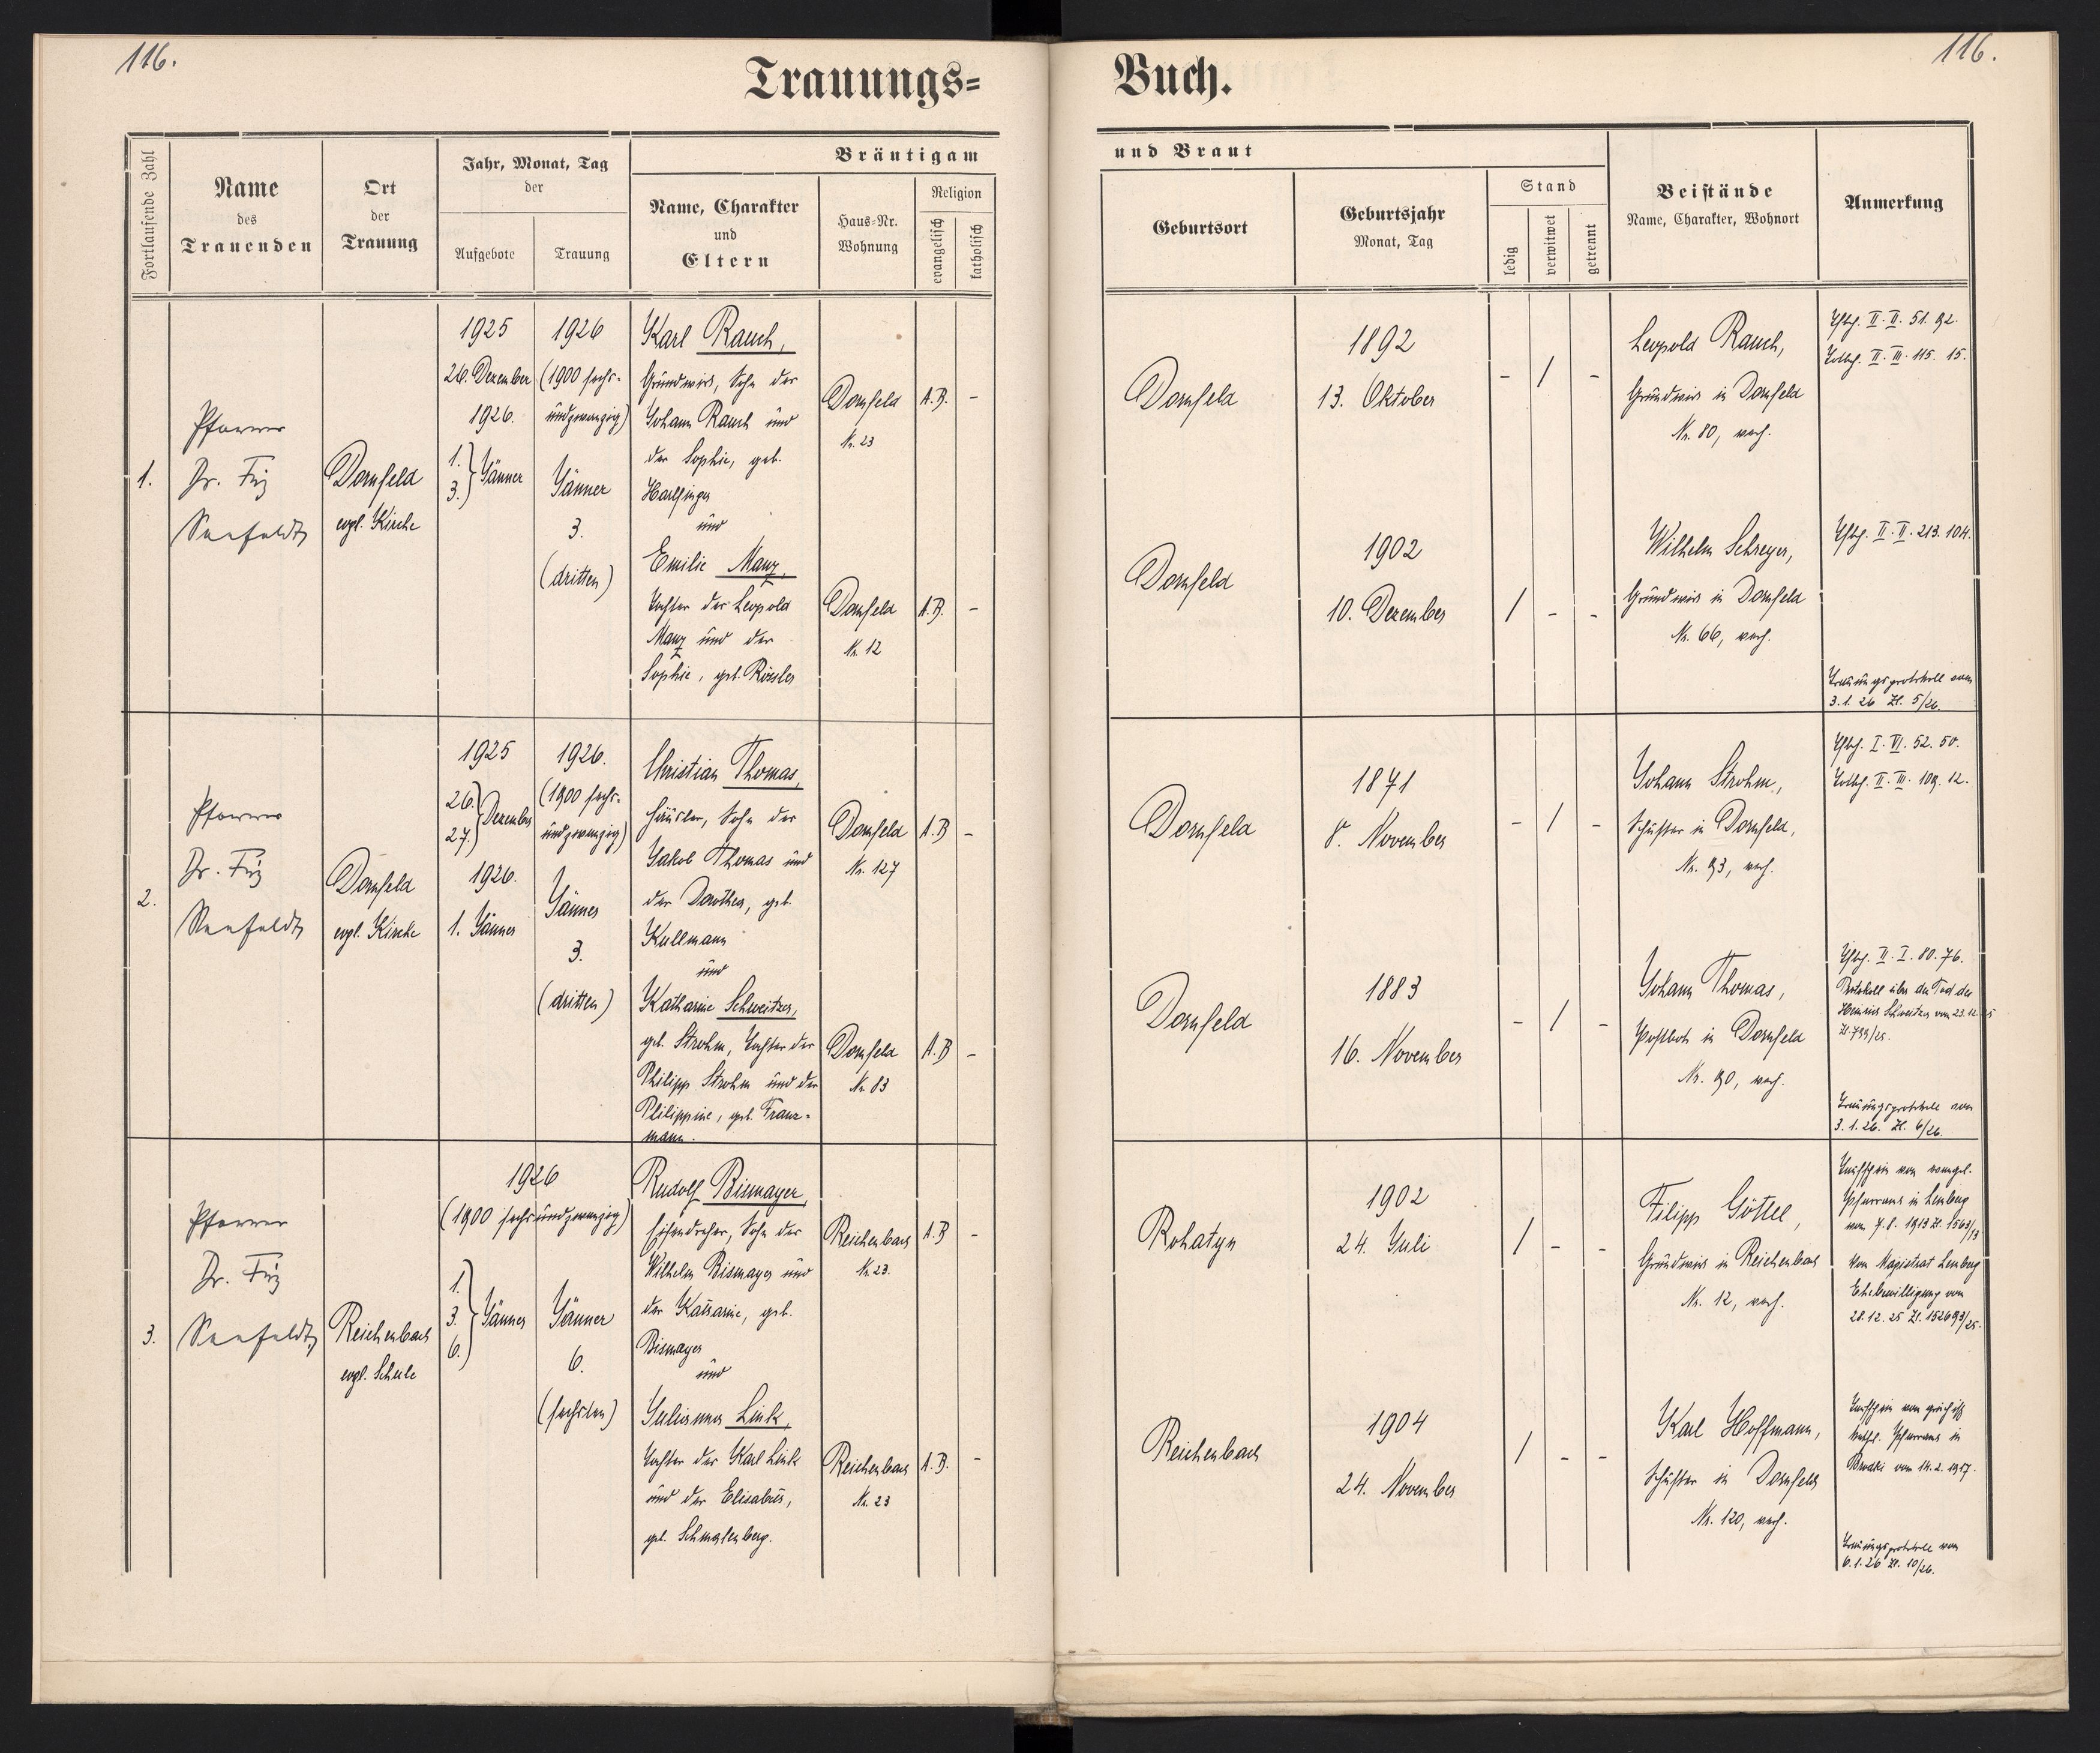 116.
Trauungs=
Fortlaufende Zahl
Name
des
Trauenden
Ort
der
Trauung
Jahr, Monat, Tag
der
Aufgebote
Trauung
Bräutigam
Name, Charakter
und
Eltern
Haus-Nr.
Wohnung
Religion
evangelisch
katholisch
1.
Pfarrer
Dr. Fritz
Seefeldt
Dornfeld
evgl. Kirche
1925
26. Dezember
1926.
1.
3. } Jänner
1926
(1900 sechs-
undzwanzig)
Jänner
3.
(dritten)
Karl Rauch,
Grundwirt, Sohn des
Johann Rauch und
der Sophie, geb.
Harlfinger
und
Emilie Manz,
Tochter des Leopold
Manz und der
Sophie, geb. Rössler
Dornfeld
Nr. 23
A.B. -
Dornfeld
Nr. 12
A.B. -
2.
Pfarrer
Dr. Fritz
Seefeldt
Dornfeld
evgl. Kirche
1925
26.
27. } Dezember
1926.
1. Jänner
1926.
(1900 sechs-
undzwanzig)
Jänner
3.
(dritten)
Christian Thomas,
Häusler, Sohn des
Jakob Thomas und
der Dorothea, geb.
Kullmann
und
Katharine Schweitzer,
geb. Strohm, Tochter des
Philipp Strohm und der
Philippine, geb. Franz-
mann.
Dornfeld
Nr. 127
A.B -
Dornfeld
Nr. 83
A.B -
3.
Pfarrer
Dr. Fritz
Seefeldt
Reichenbach
evgl. Schule
1926
(1900 sechsundzwanzig)
1.
3. } Jänner
6.
Jänner
6.
(sechsten)
Rudolf Bismayer,
Eisendreher, Sohn des
Wilhelm Bismayer und
der Katharine, geb.
Bismayer
und
Julianna Link,
Tochter des Karl Link
und der Elisabeth,
geb. Schmalenberg.
Reichenbach
Nr. 23.
A.B -
Reichenbach
Nr. 23
A.B. -
116.
Buch.
und Braut
Geburtsort
Geburtsjahr
Monat, Tag
Stand
ledig
verwitwet
getrennt
Beistände
Name, Charakter, Wohnort
Anmerkung
Dornfeld
1892
13. Oktober
- / -
Leopold Rauch,
Grundwirt in Dornfeld
Nr. 80, verh.
II. II. 51. 92.
II. III. 115. 15.
Dornfeld
1902
10. Dezember
/ - -
Wilhelm Schreyer,
Grundwirt in Dornfeld
Nr. 66, verh.
II. II. 213. 104.
Trauungsprotokoll vom
3. 1. 26 Zl. 5/26.
Dornfeld
1871
8. November
- / -
Johann Strohm,
Schuster in Dornfeld,
Nr. 93, verh.
I. VI. 52. 50.
II. III. 109. 12.
Dornfeld
1883
16. November
- / -
Johann Thomas,
Postbote in Dornfeld
Nr. 90, verh.
II. I. 80. 76.
Protokoll über den Tod des
Heinrich Schweitzer vom 23.12.25
Zl. 799/25.
Trauungsprotokoll vom
3. 1. 26. Zl. 6/26.
Rohatyn
1902
24. Juli
/ - -
Filipp Göttel,
Grundwirt in Reichenbach
Nr. 12, verh.
Taufschein vom evangel.
Pfarramt in Lemberg
vom 7. 8. 1913 Zl. 1563/13
Vom Magistrat Lemberg
Ehebewilligung vom
28. 12. 25 Zl. 152693/25.
Reichenbach
1904
24. November
/ - -
Karl Hoffmann,
Schuster in Dornfeld
Nr. 120, verh.
Taufschein vom griechisch
kathol. Pfarramt in
Brodki vom 14. 2. 1917.
Trauungsprotokoll vom
6. 1. 26 Zl. 10/26.